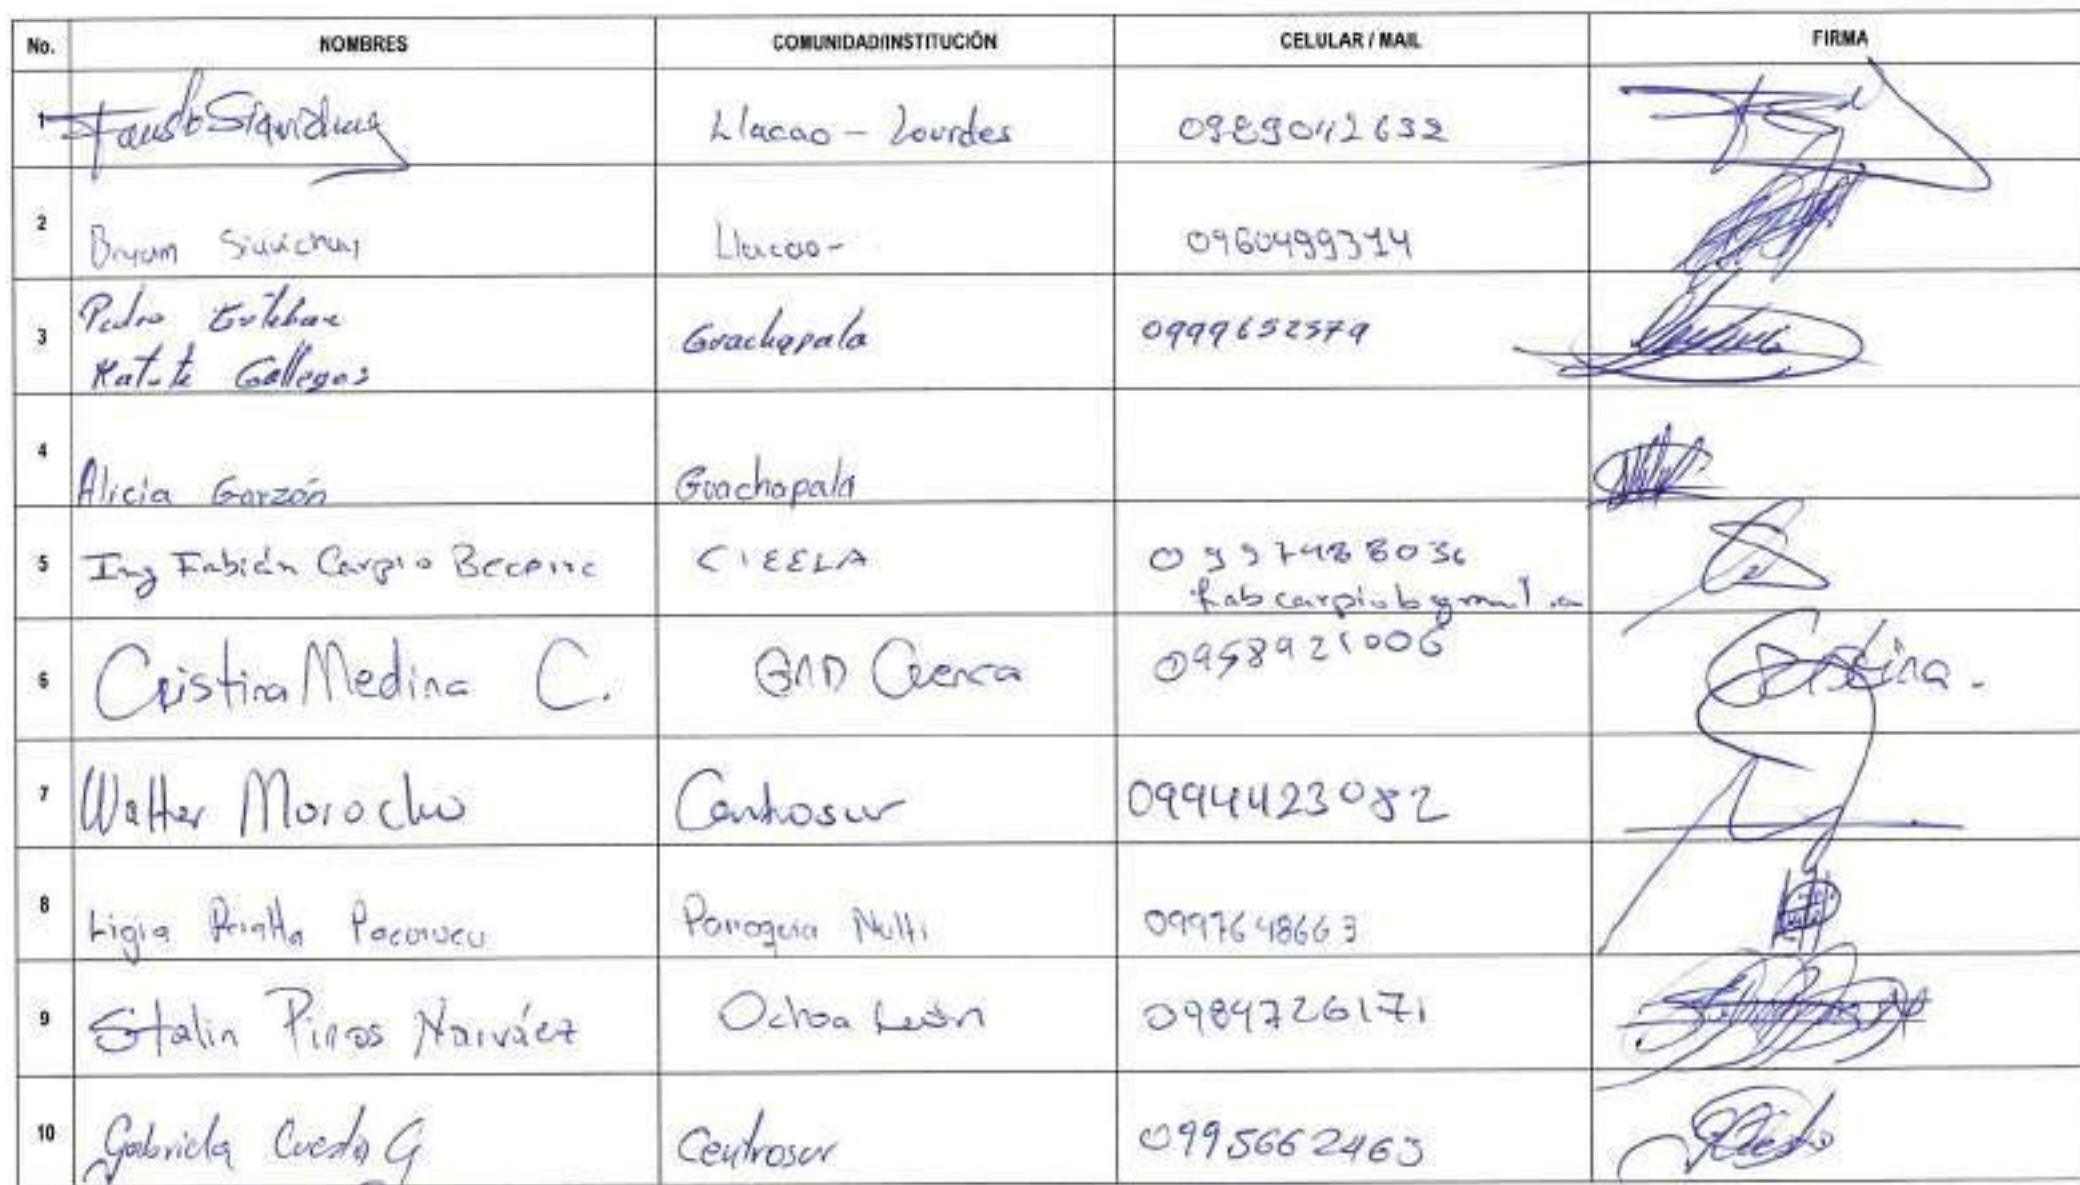 No. NOMBRES COMUNIDAD/INSTITUCIÓN CELULAR / MAIL FIRMA
1 Fausto Siavichay Llacao - Lourdes
2 Bryam Siavichay Llacao- 0960499314
3 Pedro Esteban
Matute Gallegos Guachapala 0999652579
4 Alicia Garzón Guachapala
5 Ing Fabián Carpio CIEELA 0997488036
6 Cristina Medina C. GAD Cuenca 0958921006 Cristina.
7 Walter Morocho Centrosur 0994423082
8 Ligia Peralta Pacurucu Parroquia Nulti 0997648663
9 Stalin Piños Narváez Ochoa León 0984726171
10 Gabriela Cuesta G Centrosur 0995662463